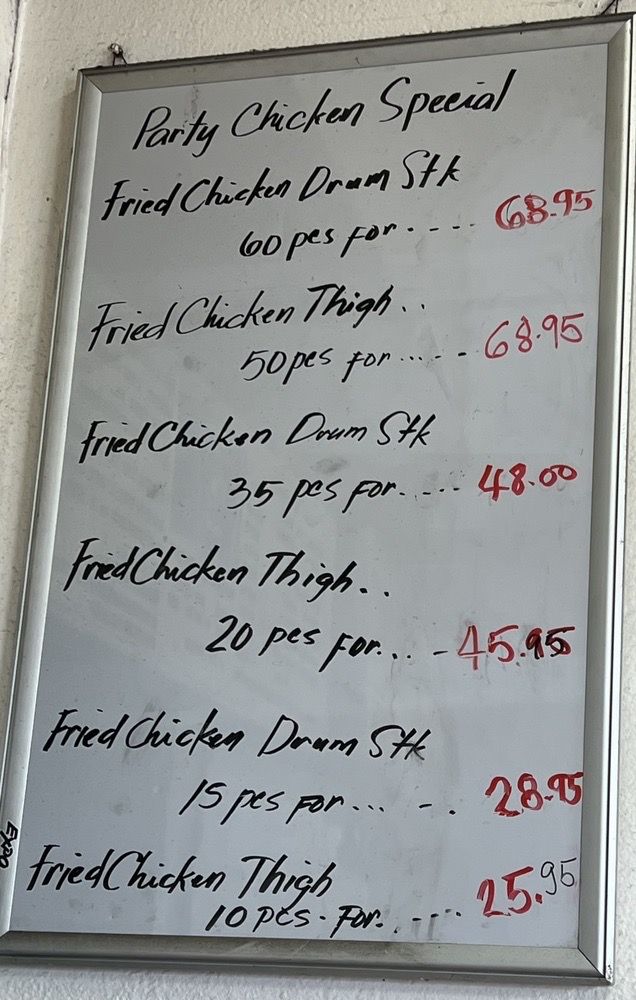 Party Chicken Special
Fried Chicken Drum Stk
60 pcs for..... 68.95
Fried Chicken Thigh..
50 pcs for..... - 68.95
Fried Chicken Drum Stk
35 pcs for..... 48.00
Fried Chicken Thigh..
20 pcs for... - 45.95
Fried Chicken Drum Stk
15 pcs for... - . 28.95
Fried Chicken Thigh
10 pcs. for..... 25.95
EXPO